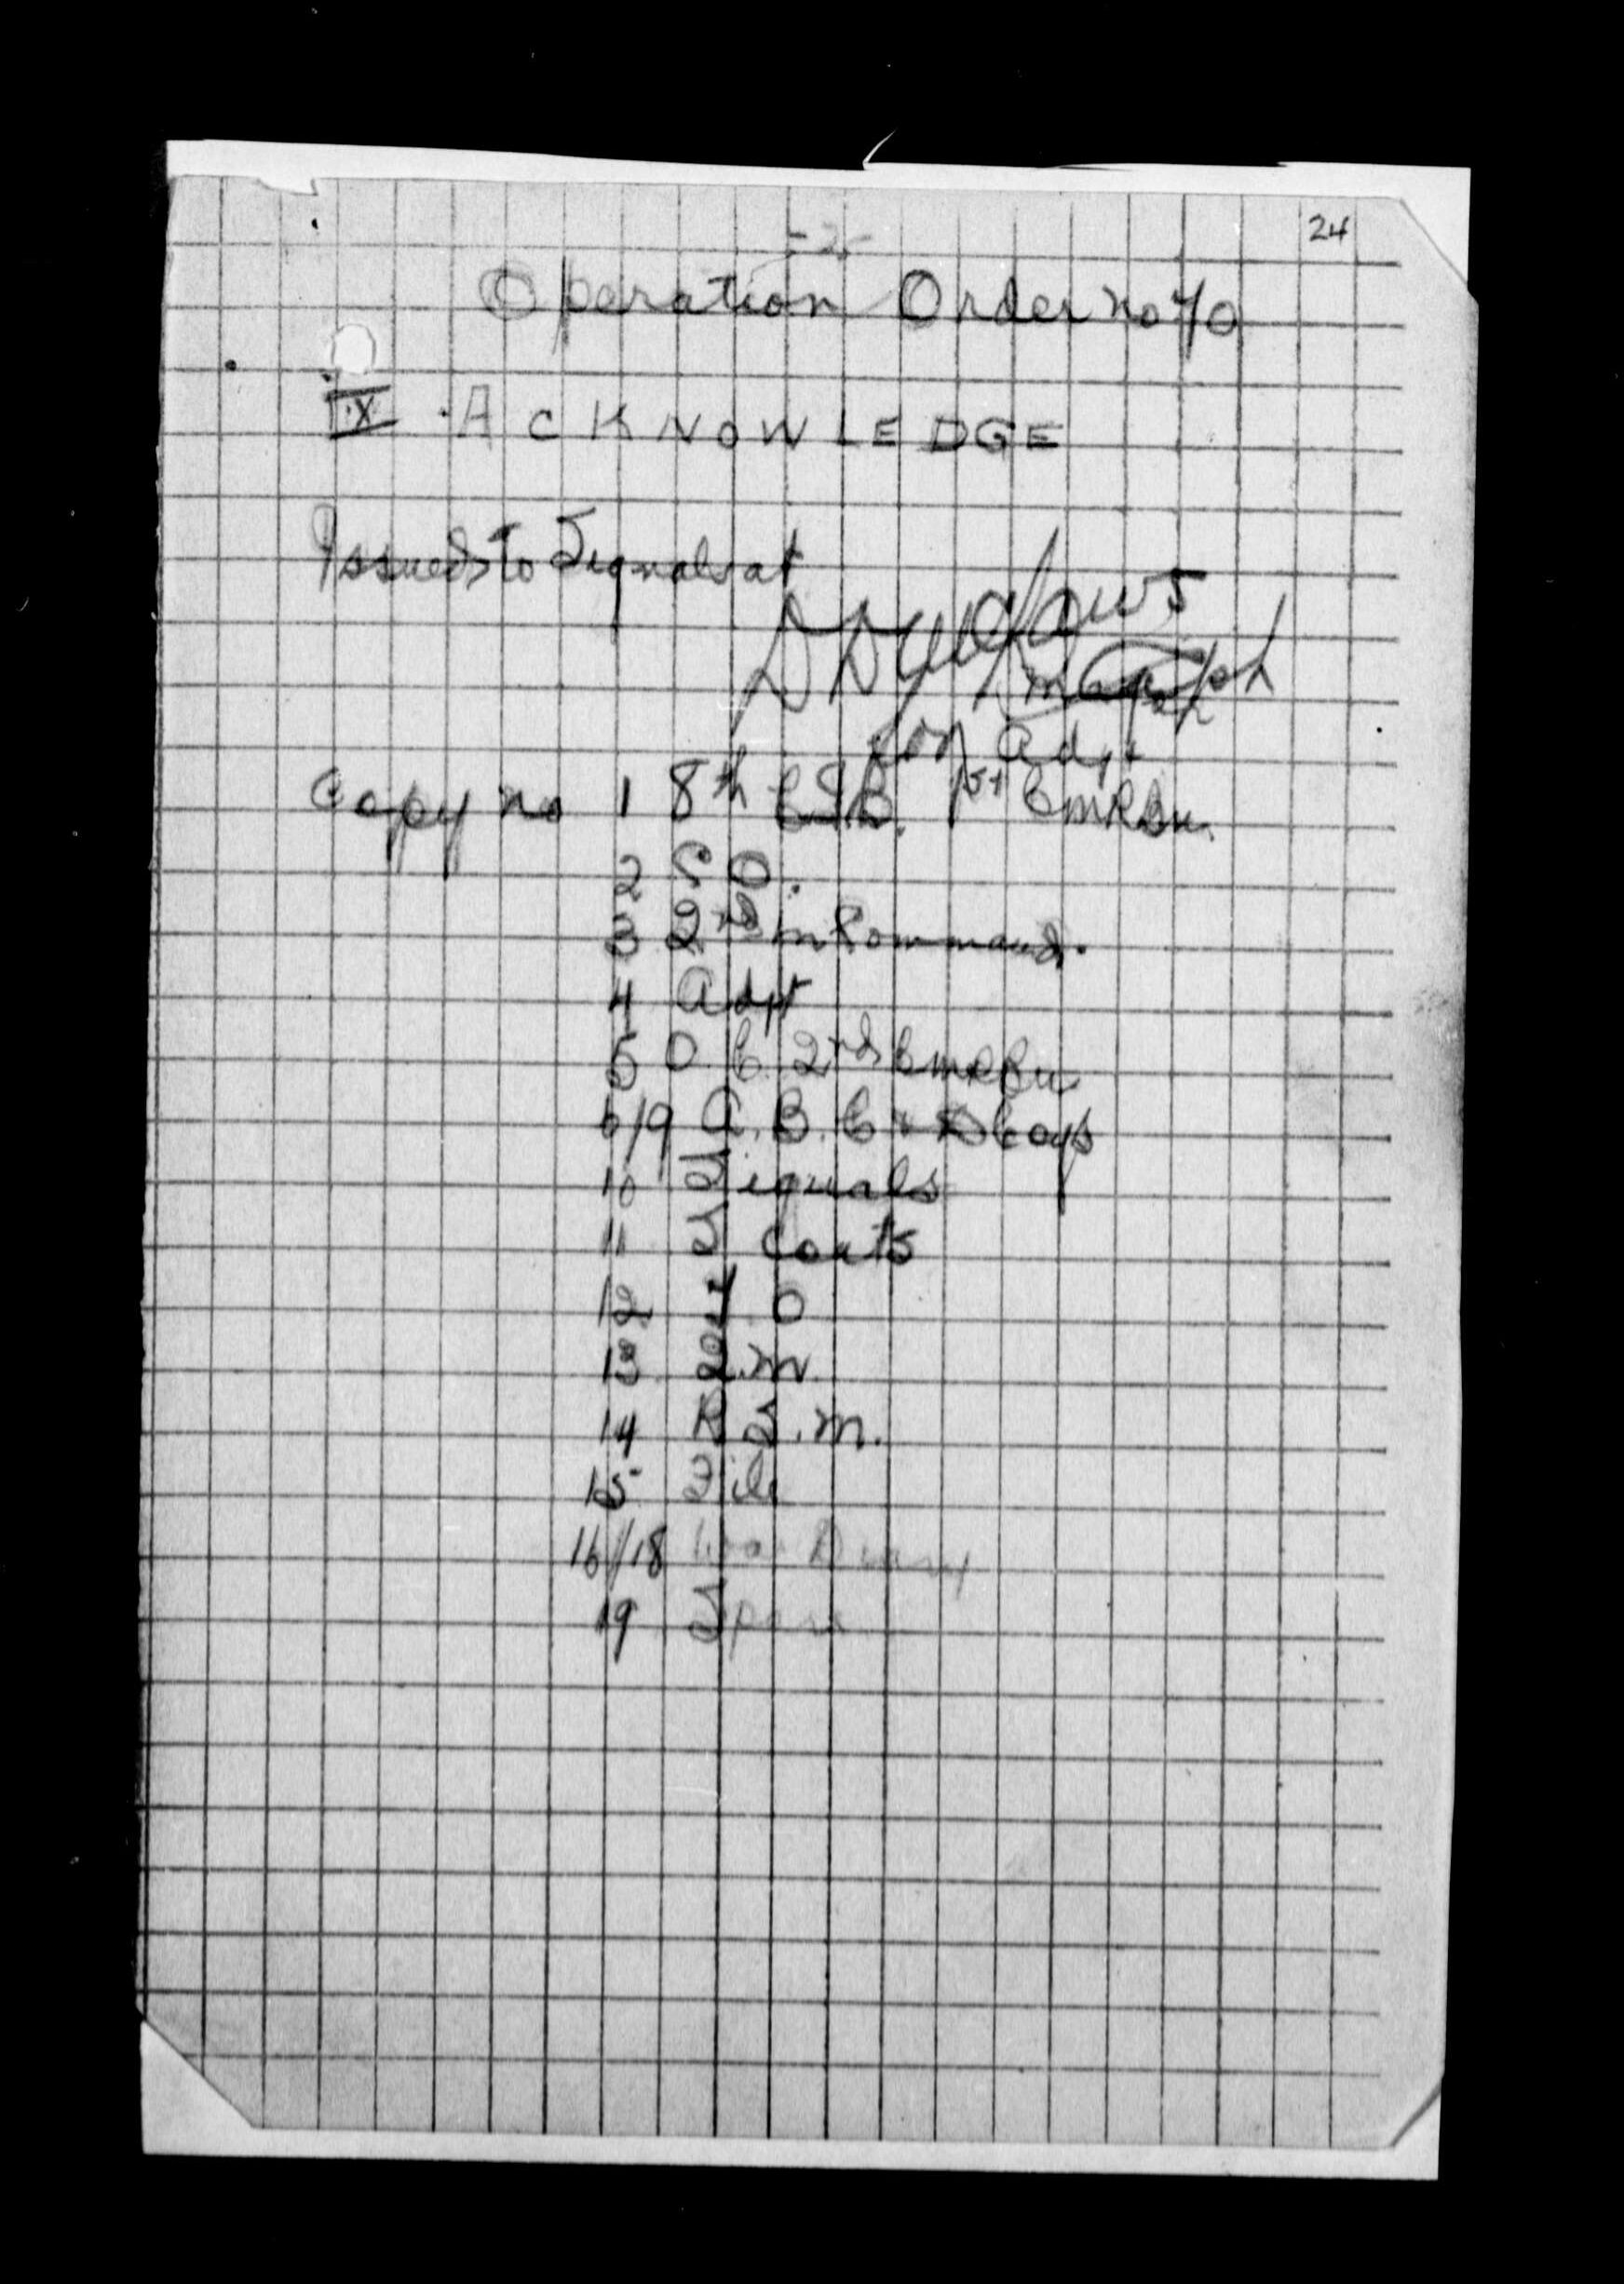 24
-2-
Operation Order no 70
IX ACKNOWLEDGE
Issued to Signals at
for Adjt
Copy no 1 8th C.I.B. 1st CMRBn.
2 C O.
3 2nd in Command.
4 Adjt
5 O. C. 2nd CMRBn
6/9 A. B. C & D Coys
10 Signals
11 Scouts
12 I O
13 Q.M.
14 R S.M.
15 File
16/18 War Diary
19 Spare